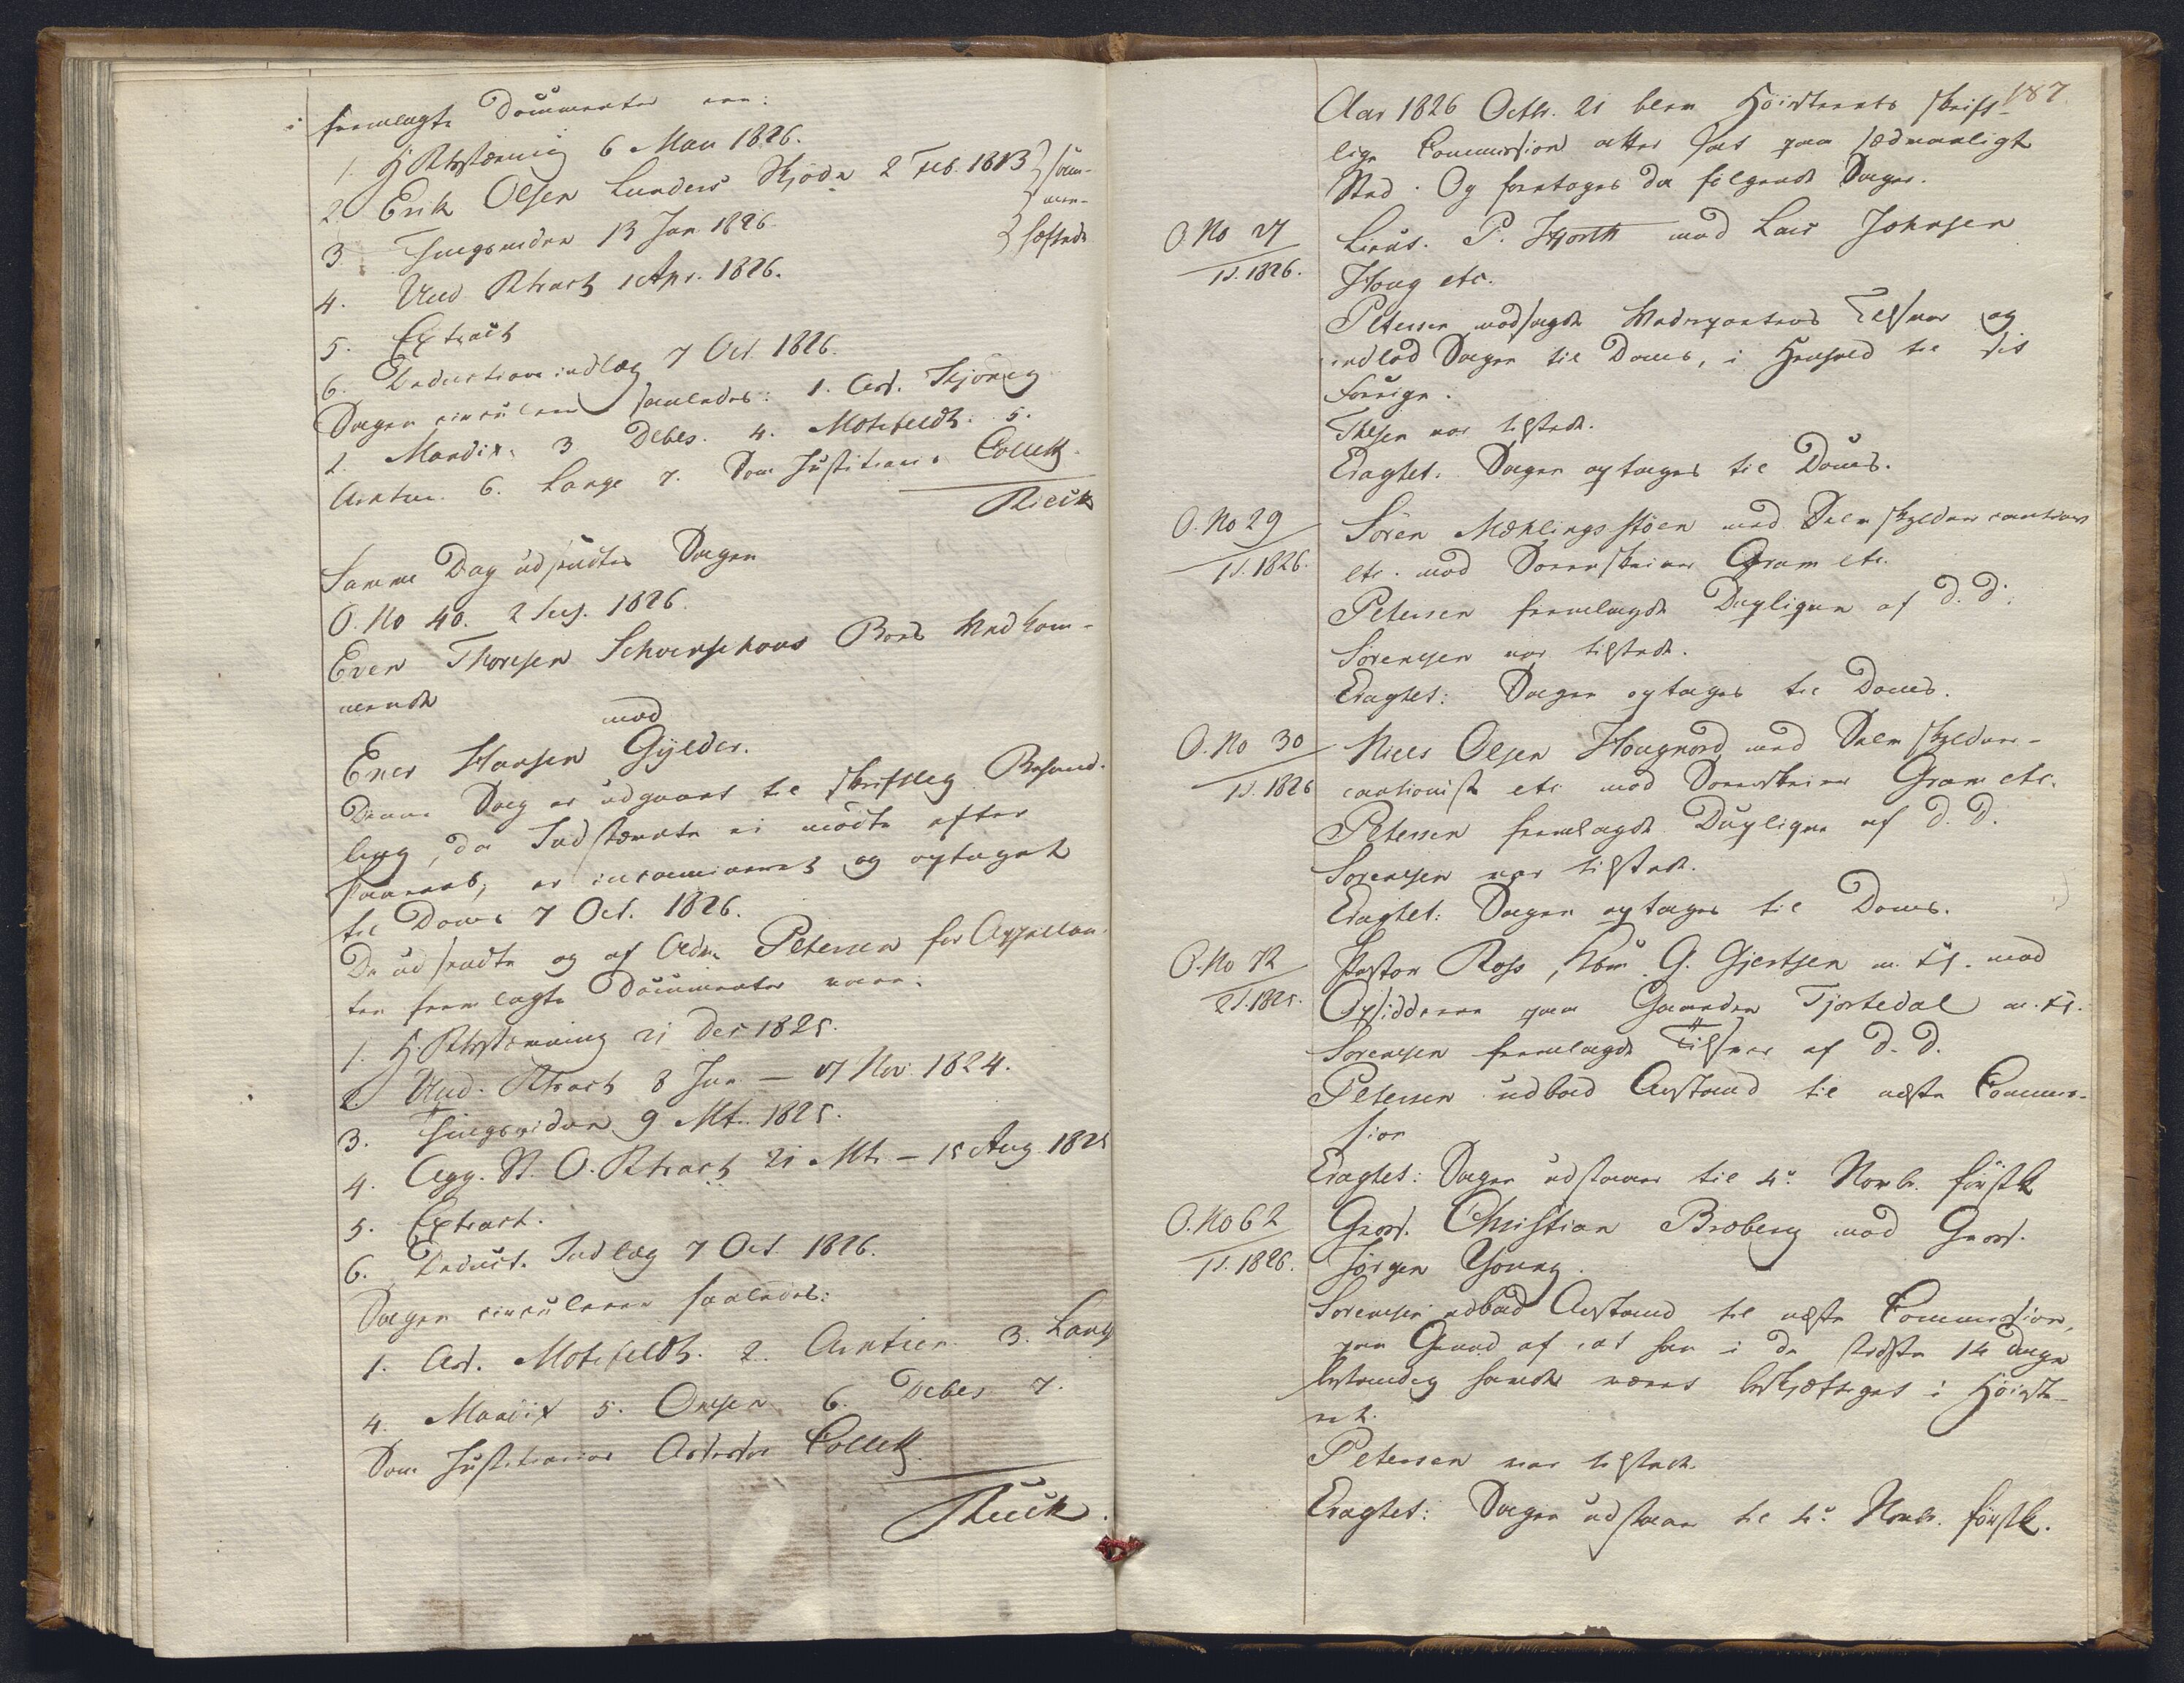 fremlagte Documenter ere:
1. H Retsstævning 6 Mai 1826.
2 Erik Olsen Lunders Skjøde 2 Feb. 1813 } sam-
} men-
3. Tingsvidne 13 Jan 1826. } hæftede
4. Und Rtsact 1 Apr. 1826.
5. Extract
6. Deductions indlæg 7 Oct. 1826.
Sagen circulerer saaledes: 1. Ass. Bjönneg
2. Mandix. 3 Debes. 4. Motzfeldt. 5.
Arntzen. 6. Lange 7. Som Justitiarius Collett.
Rieck
Samme Dag udsendtes Sagen
O. No 40. 2 Ses. 1826.
Even Thoresen Boes Vedkom-
mende
mod
Ener Hansen Gylder.
Denne Sag er udgaaet til skriftlig Behand-
ling, da Indstævnte ei mødte efter
Paaraab, er incamineret og optaget
til Doms 7 Oct. 1826.
De udsendte og af Adv. Petersen for Appellan-
ten fremlagte Documenter vare.
1. H. Rtsstævning 21 Dec 1825.
2. Und. Rtsact 8 Jan – 17 Nov. 1824.
3. Tingsvidne 9 Mt. 1825.
4. Agg. St. O. Rtsact 21 Mt. – 15 Aug 1825
5. Extract.
6. Deduct. Indlæg 7 Oct 1826.
Sagen circulerer saaledes:
1. Ass. Motzfeldt. 2. Arntzen 3. Lange
4. Mandix 5. Omsen 6. Debes 7.
Som Justitiarius Assessor Collett.
Rieck.
187.
Aar 1826 Octbr. 21 blev Höiesterets skrift-
lige Commission atter sat paa sædvanligt
Sted. Og foretoges da følgende Sager.
O. No 27 Lieut. P. Hjorth mod Lars Johnsen
1 S. 1826. Houg etc.
Petersen modsagde Modpartens Tilsvar og
indlod Sagen til Doms, i Henhold til sit
Forrige.
Thesen var tilstede.
Eragtet. Sagen optages til Doms.
O. No 29 Sören Mæhlingsstöen med Selvskyldner cautionist
1 S. 1826. etc. mod Sorenskriver Gram etc.
Petersen fremlagde Duplique af D. D.
Sörensen var tilstede.
Eragtet: Sagen optages til Doms.
O. No 30 Niels Olsen Hougnord med Selvskyldner-
1 S. 1826 cautionist etc mod Sorenskriver Gram etc.
Petersen fremlagde Duplique af D. D.
Sörensen var tilstede.
Eragtet: Sagen optages til Doms.
O. No 72 Pastor Ross, G. Gjertsen m. fl. mod
2 S. 1825. Opsidderne paa Gaarden Tjostedal m. fl.
Sörensen fremlagde Tilsvar af D. D.
Petersen udbad Anstand til næste Commis-
sion
Eragtet: Sagen udstaaer til 4de Novbr. førstk.
O. No 62 Gross. Christian Broberg mod Gross.
1 S. 1826. Jörgen Young.
Sörensen udbad Anstand til næste Commission,
paa Grund af, at han i de sidste 14 Dage
bestandig havde været beskjæftiget i Höieste-
ret.
Petersen var tilstede.
Eragtet: Sagen udstaaer til 4de Novbr. førstk.